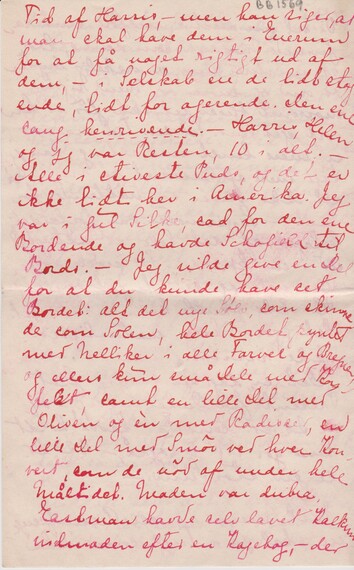 BB1569
Tid af Harris, – men han siger, at
man skal have dem i Enerum
for at få noget rigtigt ud af
dem, – i Selskab ere de lidt støj
ende, lidt for agerende. Men en
sang henrivende. – Harris, Helen
og Jeg var Resten, 10 i alt. –
Alle i stiveste Puds, og det er
ikke lidt her i Amerika. Jeg
var i gul Silke, sad for den ene
Bordende og havde Schofield til
Bords. – Jeg vilde give en del
for at du kunde have set
Bordet: alt det nye Sølv, som skinne
de som Solen, hele Bordet pyntet
med Nelliker i alle Farver og Bregner
og ellers kun små dele med Kon
fekt samt en lille del med
Oliven og én med Radiser, en
lille del med Smör ved hver Kou
vert, som de nöd af under hele
Måltidet. Maden var
Eastman havde selv lavet Kalkun
indmaden efter en Kogebog, – der